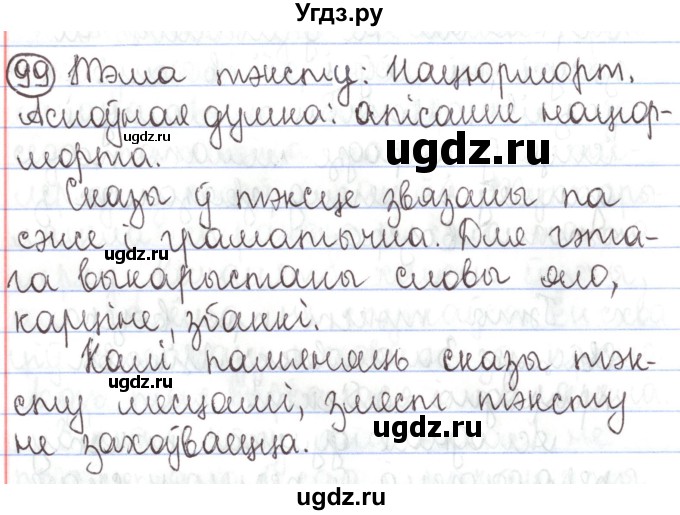 Угдз.ру
99 Тэма тэксту: Нацюрморт.
Асноўная думка: апісанне нацюр-
морта.
Сказы ў тэксце звязаны па
сэнсе і граматычна. Для гэта-
га выкарыстаны словы яго,
карціне, збанкі.
Калі памяняць сказы тэк-
сту месцамі, змест тэксту
не захоўваецца.
ugdz.ru
ugdz.ru
ugdz.ru
ugdz.ru
ugdz.ru
ugdz.ru